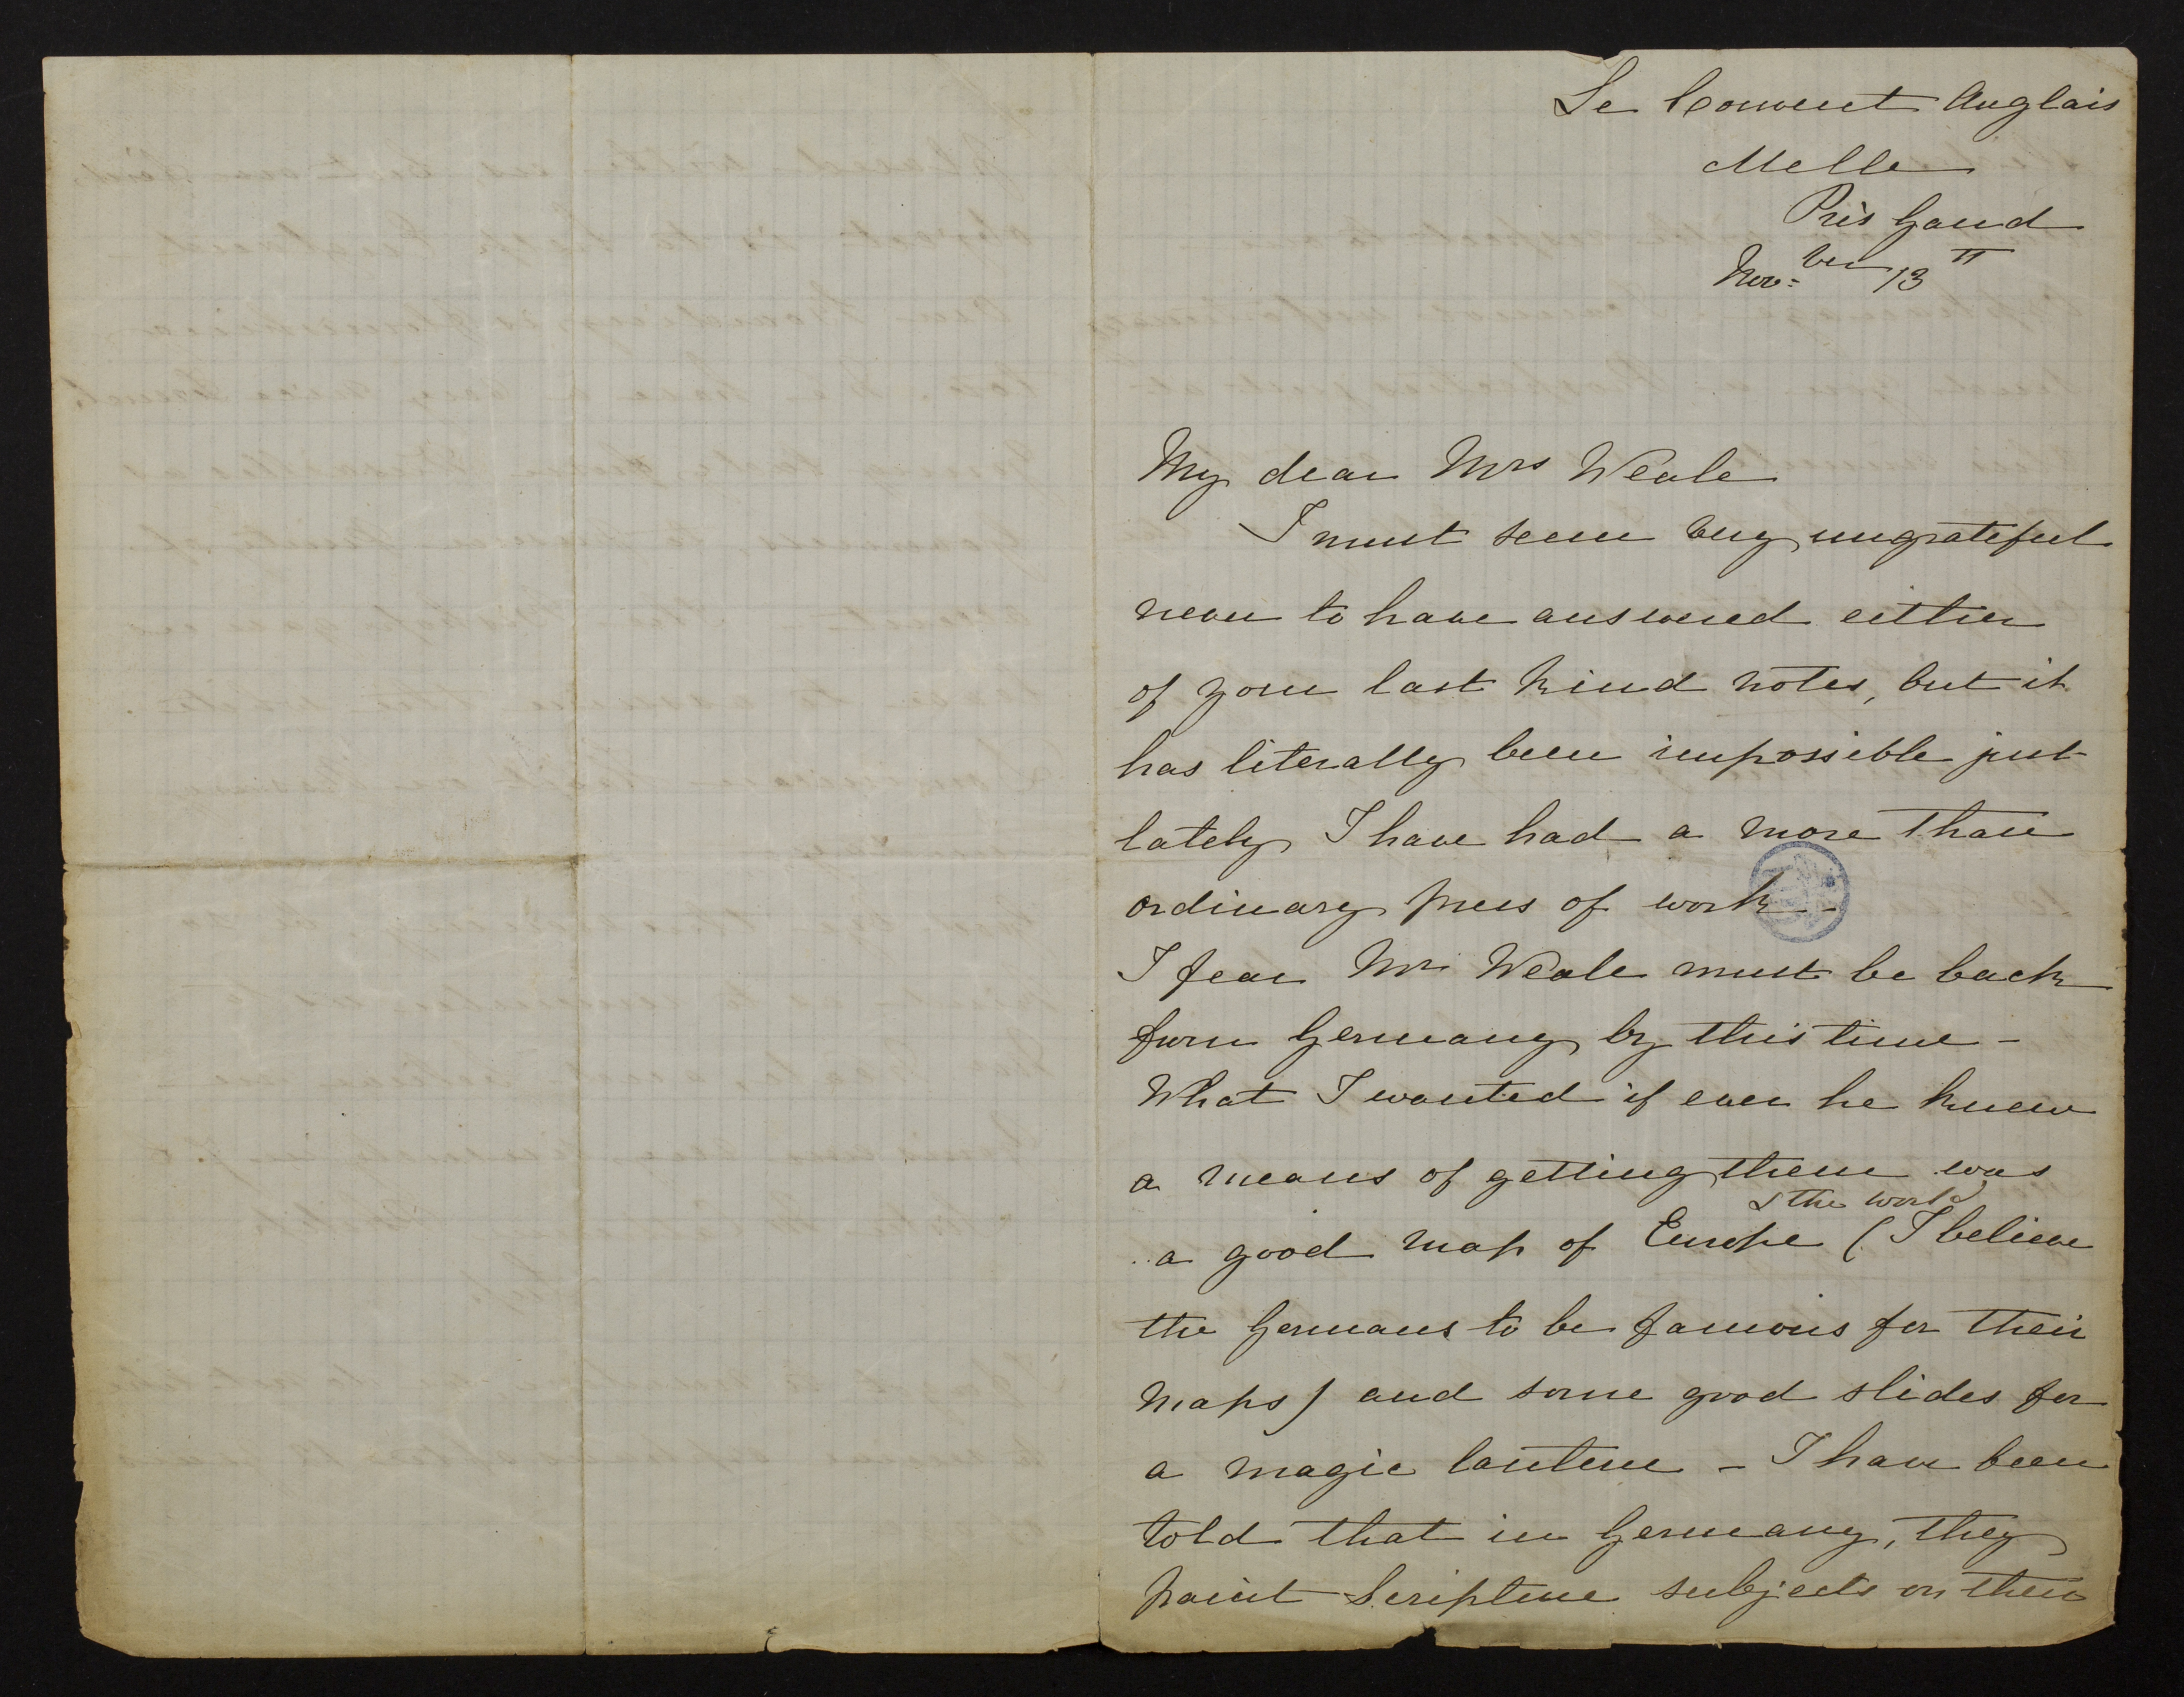 Le Convent Anglais
Melle
Près Gand
Nov:ber 13th
My dear Mrs Weale
I must seem very ungrateful
never to have answered either
of your last kind notes, but it
has literally been impossible just
lately I have had a more than
ordinary press of work -
I fear Mr Weale must be back
from Germany by this time -
What I wanted if ever he knew
a means of getting them was
& the world
a good map of Europe (I believe
the Germans to be famous for their
maps) and some good slides for
a magic lantern - I have been
told that in Germany, they
paint Scripture subjects on their